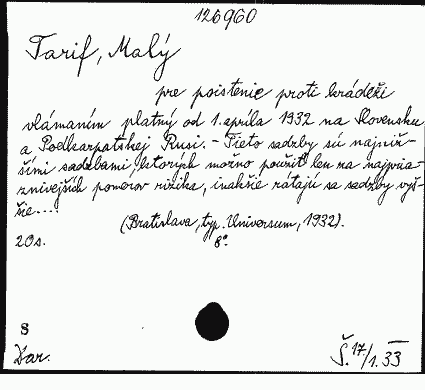 126960
Tarif, Malý
pre poistenie proti krádeži
vlámaním platný od 1. apríla 1932 na Slovensku
a Podkarpatskej Rusi. - Tieto sadzby sú najniž-
šími sadzbami, ktorých možno použiť len za najpria-
znivejších pomerov rizika, inakšie rátajú sa sadzby vyš-
šie....
(Bratislava, typ. Universum, 1932).
20 s. 8°.
S
Dar. Š. 17/1. 33